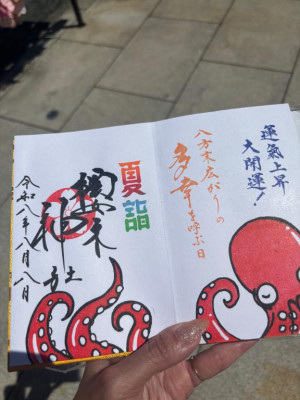 運氣上昇
大開運！
八方末広がりの
多幸を呼ぶ日
夏詣
櫻木
神社
令和八年八月八日